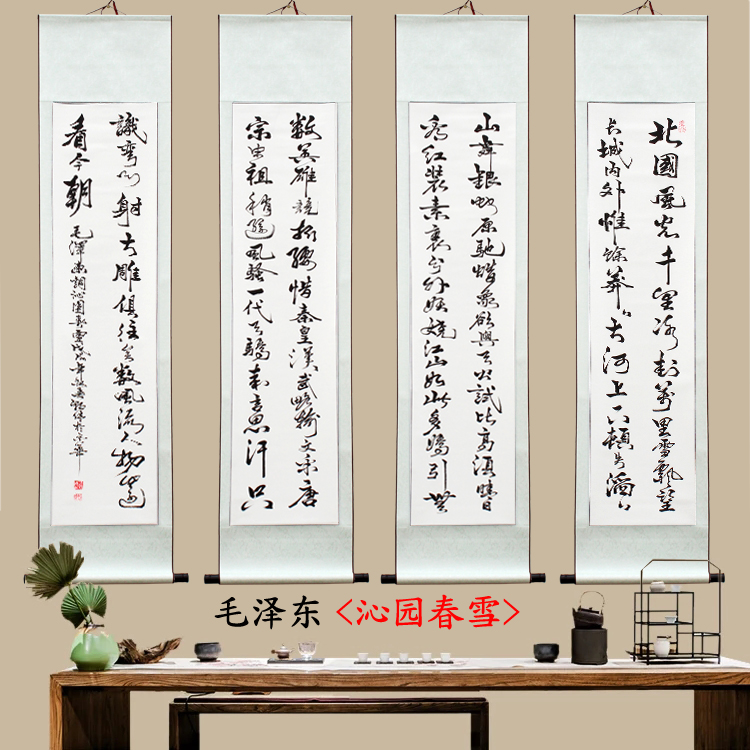 北國風光千里冰封萬里雪飘望
长城内外惟餘莽〻大河上下頓失滔〻
山舞銀蛇原馳蜡象欲與天公試比高須晴日
看红装素裹分外妖娆江山如此多嬌引無
数英雄競折腰惜秦皇漢武略輸文采唐
宗宋祖稍遜風骚一代天驕成吉思汗只
識彎弓射大雕俱往矣数風流人物還
看今朝
毛澤東詞沁園春雪
毛泽东 <沁园春雪>